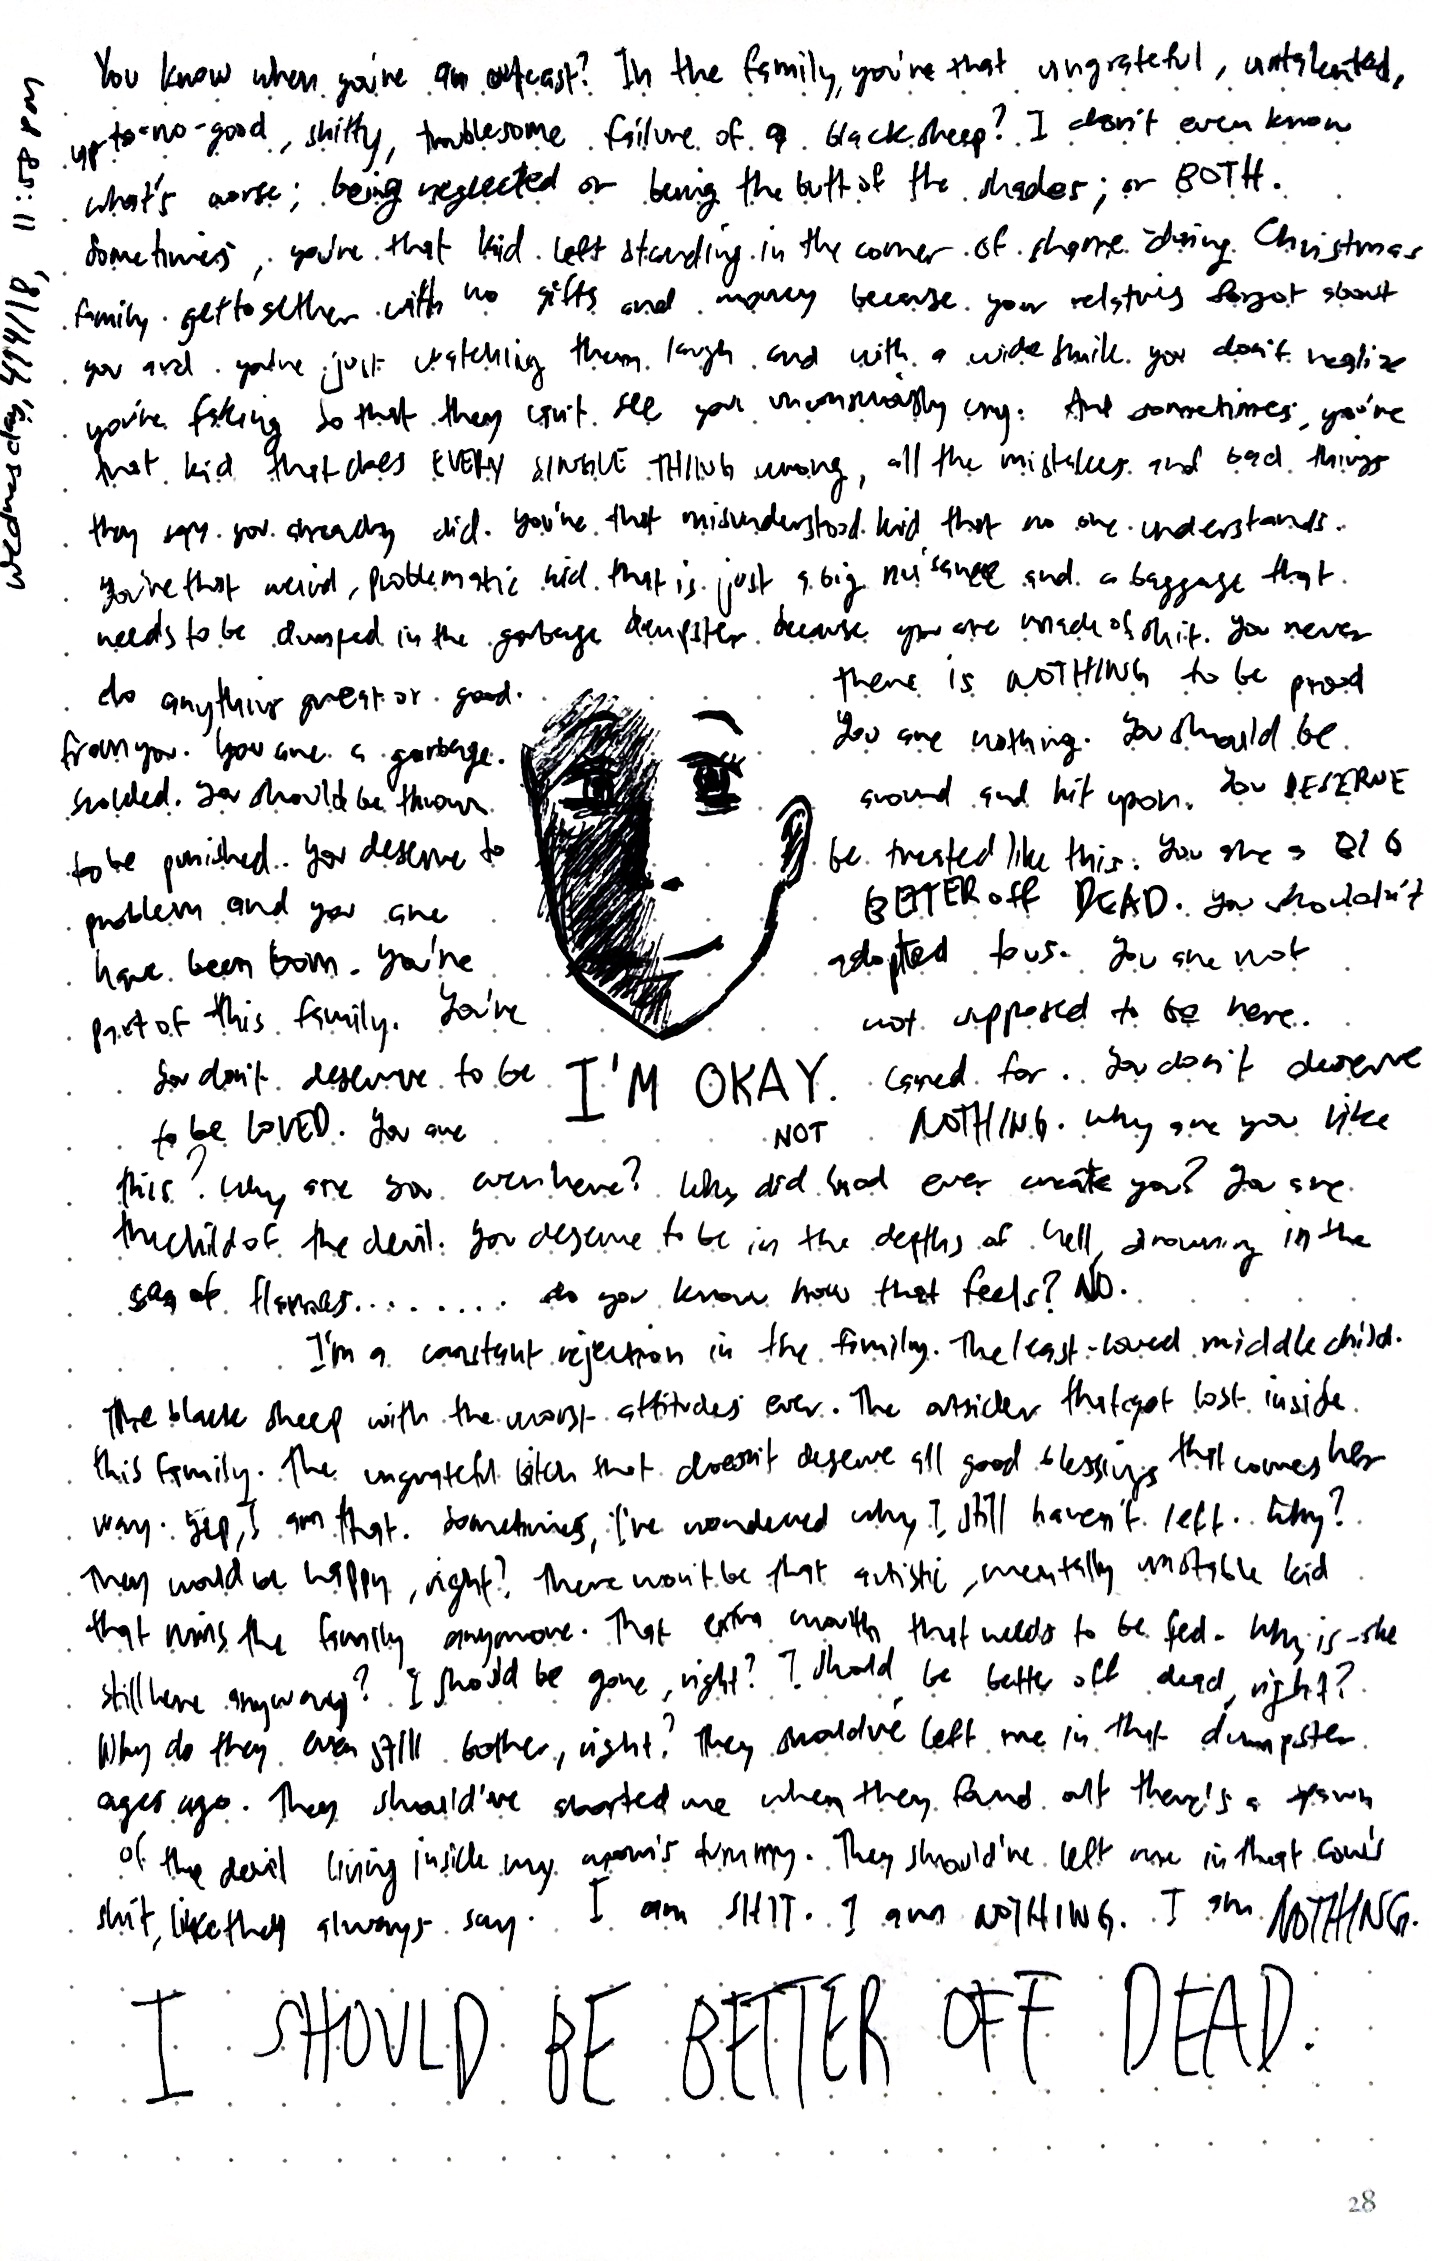 wednesday, 4/4/18, 11:58 PM
You know when you're an outcast? In the family, you're that ungrateful, untalented,
up-to-no-good, shitty, troublesome failure of a black sheep? I don't even know
what's worse; being neglected or being the butt of the shades; or BOTH.
Sometimes, you're that kid left standing in the corner of shame during Christmas
family get together with no gifts and money because your relatives forgot about
you and you're just watching them laugh and with a wide smile you don't realize
you're faking so that they can't see you cry. And sometimes, you're
that kid that does EVERY SINGLE THING wrong, all the mistakes and bad things
they say you already did. You're that misunderstood kid that no one understands.
You're that weird, problematic kid that is just a big nuisance and a baggage that
needs to be dumped in the garbage dumpster because you are made of shit. You never
do anything great or good. there is NOTHING to be proud
from you. You are a garbage. You are nothing. You should be
scolded. You should be thrown around and hit upon. You DESERVE
to be punished. You deserve to be treated like this. You are a BIG
problem and you are BETTER off DEAD. You shouldn't
have been born. You're adopted to us. You are not
part of this family. You're not supposed to be here.
You don't deserve to be cared for. You don't deserve
I'M OKAY.
NOT
to be LOVED. You are NOTHING. Why are you like
this? Why are you even here? Why did God ever create you? You are
the child of the devil. You deserve to be in the depths of hell, drowning in the
sea of flames......... do you know how that feels? NO.
I'm a constant rejection in the family. The least-loved middle child.
The black sheep with the worst attitudes ever. The outsider that got lost inside
this family. The ungrateful bitch that doesn't deserve all good blessings that comes her
way. Yep, I am that. Sometimes, I've wondered why I still haven't left. Why?
They would be happy, right? There won't be that autistic, mentally unstable kid
that ruins the family anymore. That extra mouth that needs to be fed. Why is she
still here anyway? I should be gone, right? I should be better off dead, right?
Why do they even still bother, right? They should've left me in that dumpster
ages ago. They should've aborted me when they found out there's a spawn
of the devil living inside my mom's tummy. They should've left me in that cow's
shit, like they always say. I am SHIT. I am NOTHING. I am NOTHING.
I SHOULD BE BETTER OFF DEAD.
28